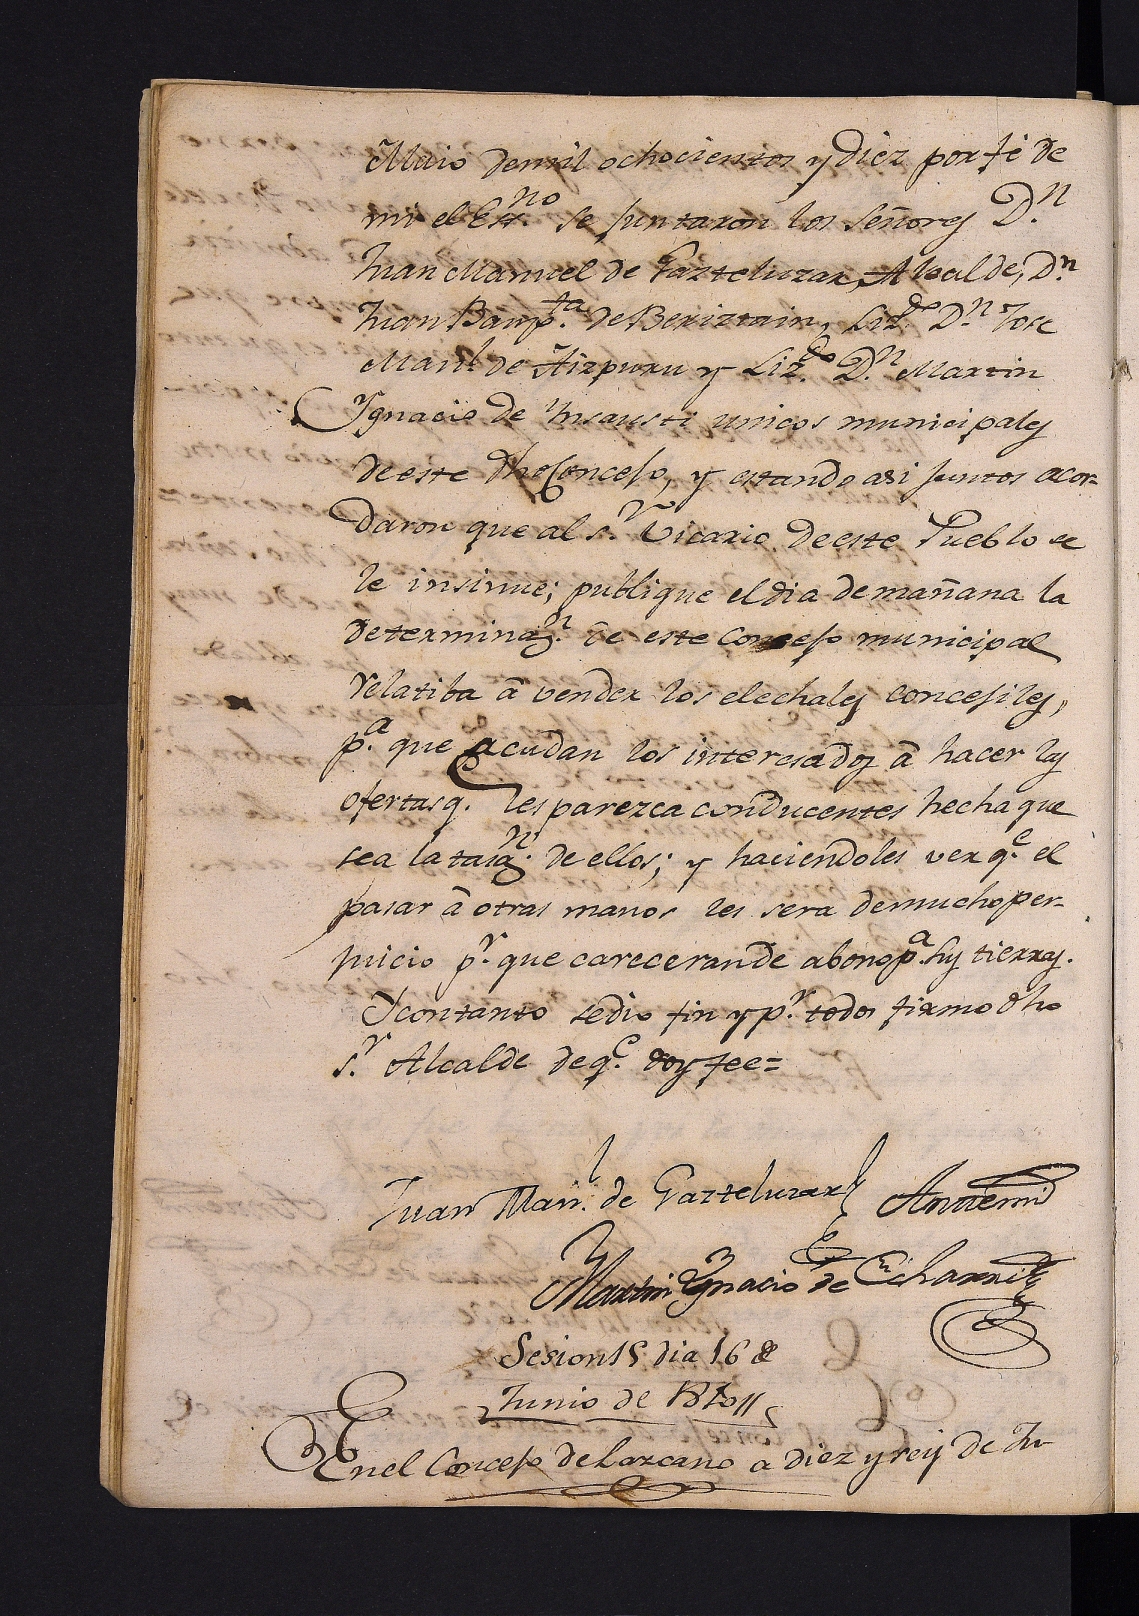 Maio demil ochocientos y Diez por fé de
mi el Essno. se juntaron los señores Dn.
Juan Manuel de Gazteluzar, Alcalde, Dn.
Juan Baupta. de Beriztain, Lizdo. Dn. Jose
Manl. de Aizpuru y Lizdo. Dn. Martin
Ygnacio de Ynsausti unicos municipales
de este dho Concejo, y estando asi juntos acor=
daron que al sr. Vicario de este Pueblo se
le insinue; publique el dia de mañana la
determinazn. de este Concejo municipal
relatiba â vender los elechales concejiles,
pa. que acudan los interesados â hacer las
ofertas q. les parezca conducentes hecha que
sea la tasazn. de ellos; y haciendoles ver qe. el
pasar â otras manos les sera demucho per-
juicio pr. que careceran de abono pa. sus tierras.
Y contanto se dio fin y pr. todos firmo dho
sr. Alcalde de qe. doy fee=
Juan Manl. de Gazteluzar Antemi
Martin Ygnacio de Echarri
Sesion 15 dia 16 de
Junio de 1810
En el Concejo de Lazcano a diez y seis de Ju-